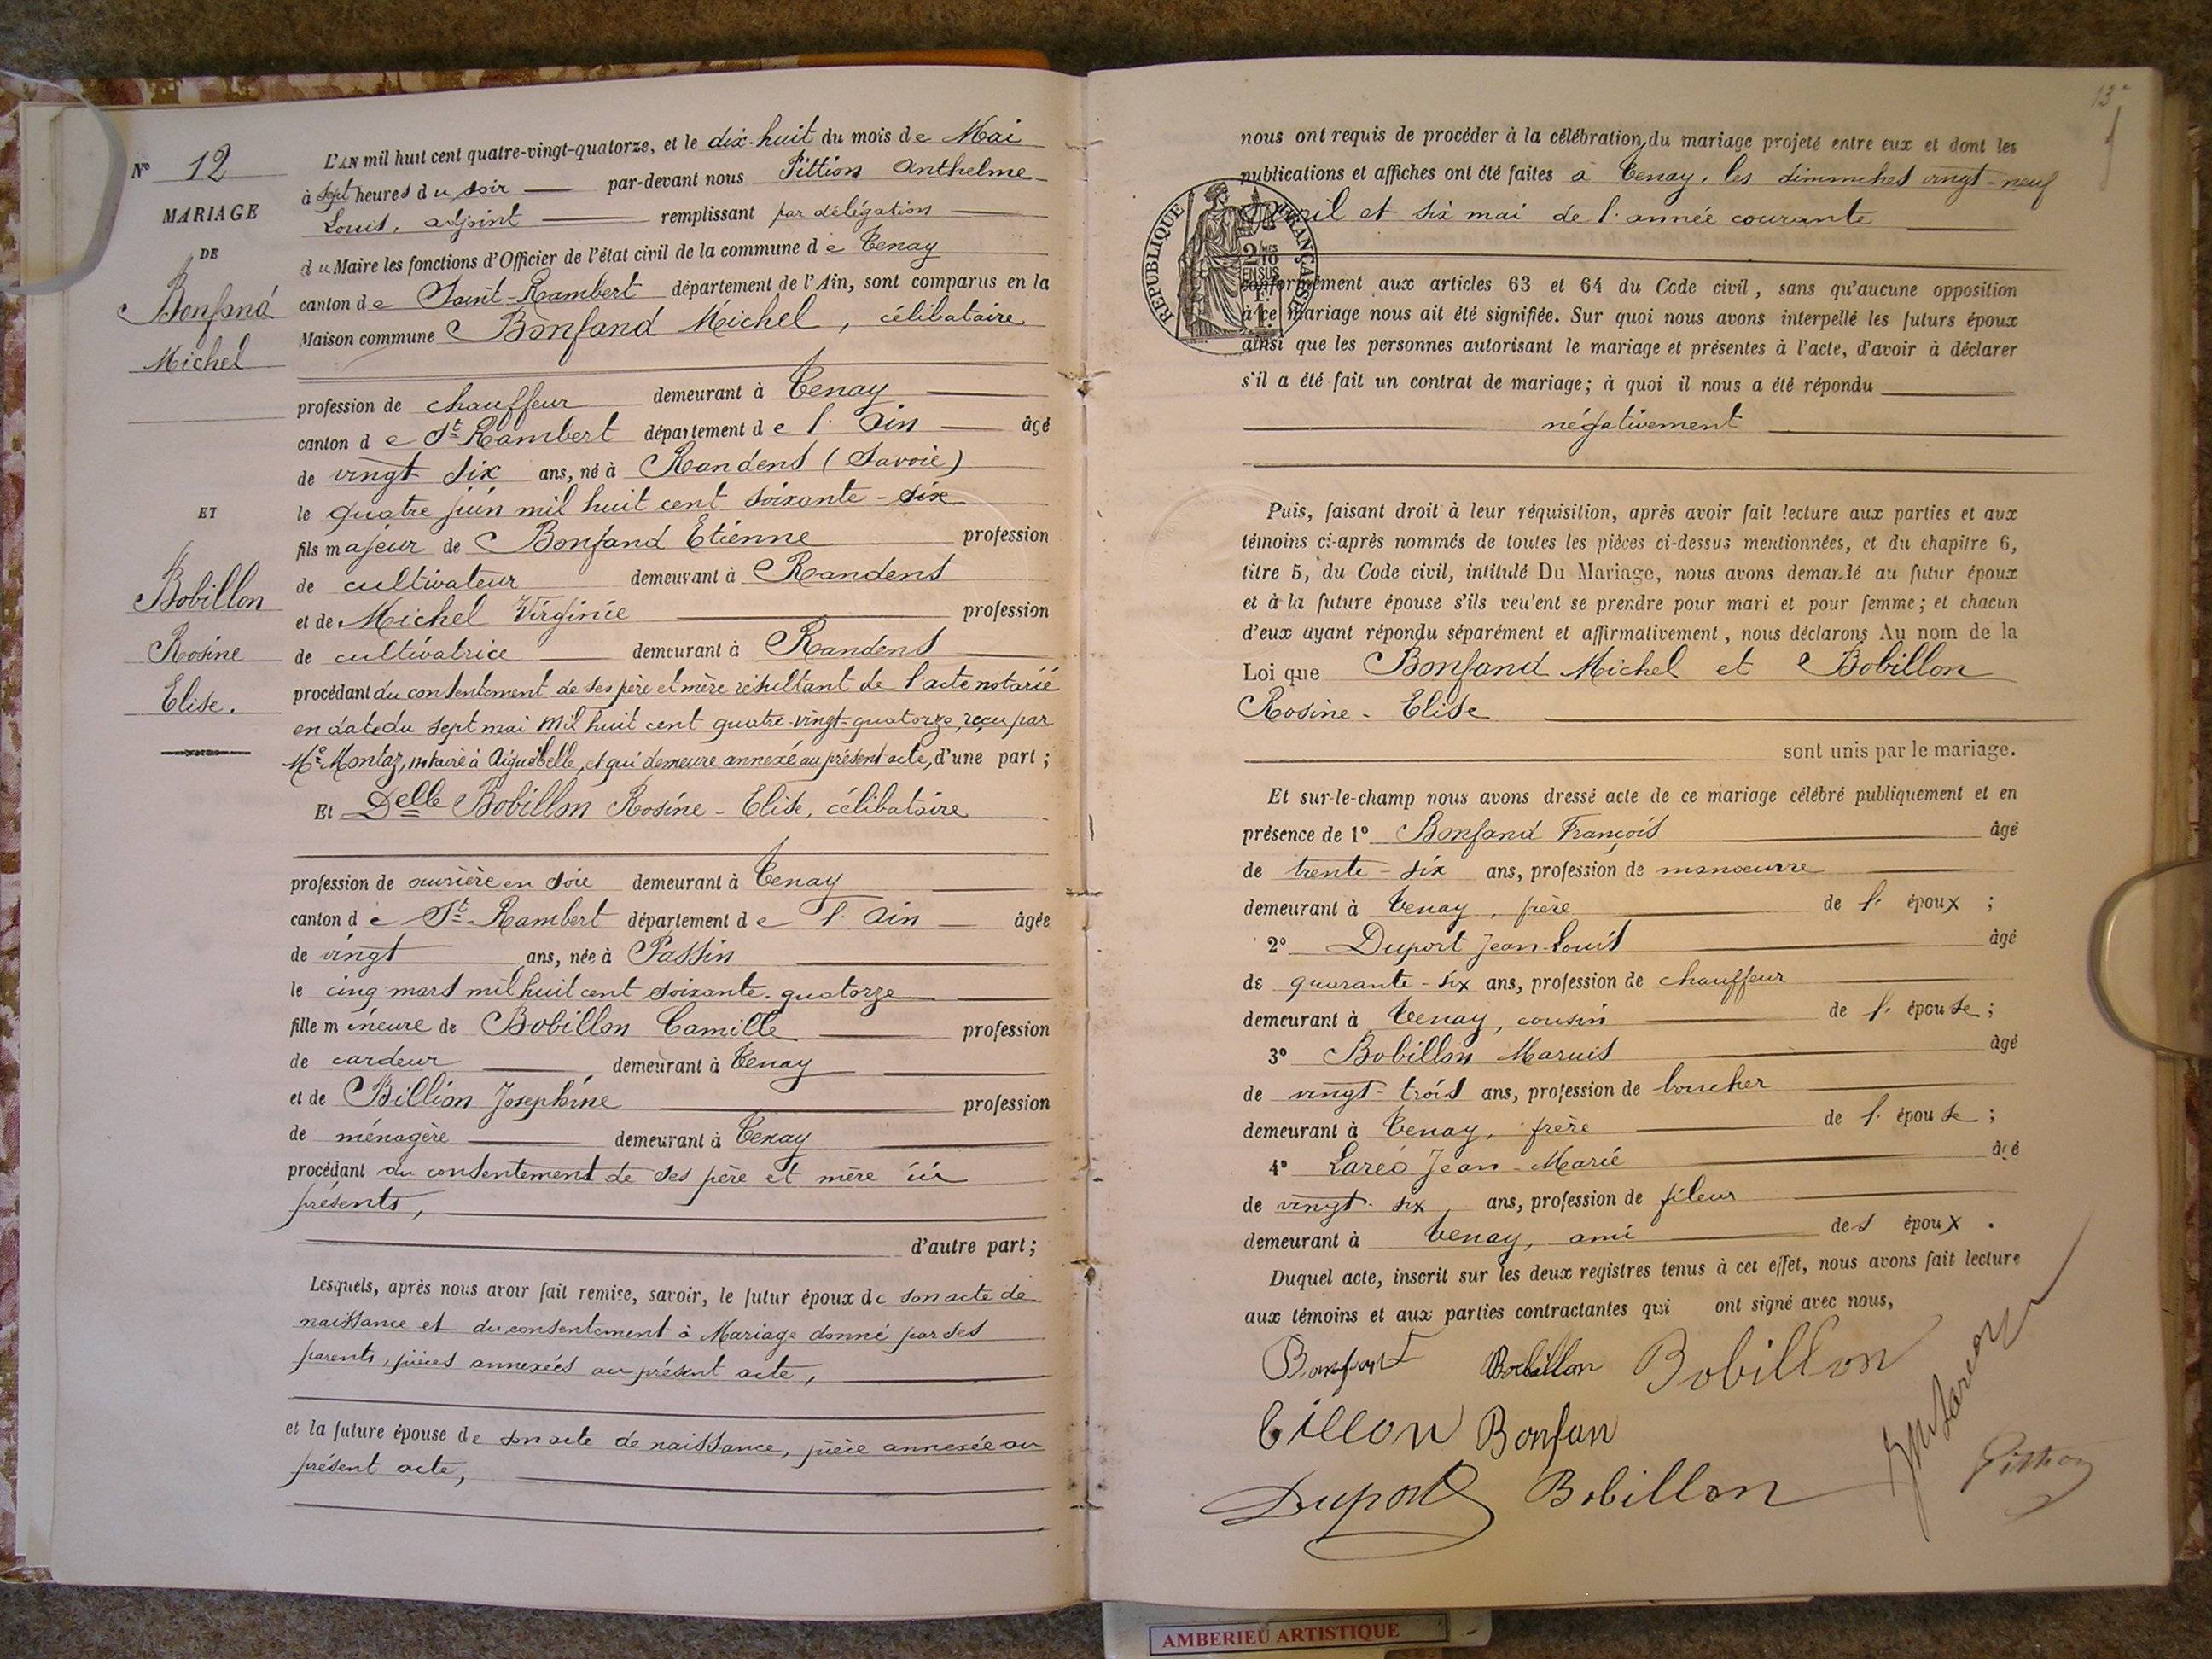 Nº 12
MARIAGE
DE
Bonfand
Michel
ET
Bobillon
Rosine
Elise.
L'AN mil huit cent quatre-vingt-quatorze, et le dix-huit du mois de Mai
à sept heures du soir par-devant nous Pittion Anthelme
Louis, adjoint remplissant par délégation
du Maire les fonctions d'Officier de l'état civil de la commune de Tenay
canton de Saint-Rambert département de l'Ain, sont comparus en la
Maison commune Bonfand Michel, célibataire
profession de chauffeur demeurant à Tenay
canton de St Rambert département de l'Ain âgé
de vingt six ans, né à Randens (Savoie)
le quatre juin mil huit cent soixante-six
fils majeur de Bonfand Etienne profession
de cultivateur demeurant à Randens
et de Michel Virginie profession
de cultivatrice demeurant à Randens
procédant du consentement de ses père et mère résultant de l'acte notarié
en date du sept mai mil huit cent quatre-vingt-quatorze, reçu par
Me Montaz, notaire à Aiguebelle, et qui demeure annexé au présent acte, d'une part;
Et Delle Bobillon Rosine-Elise, célibataire
profession de ouvrière en soie demeurant à Tenay
canton de St-Rambert département de l'Ain âgée
de vingt ans, née à Passin
le cinq mars mil huit cent soixante-quatorze
fille mineure de Bobillon Camille profession
de cardeur demeurant à Tenay
et de Billion Joséphine profession
de ménagère demeurant à Tenay
procédant du consentement de ses père et mère ici
présents,
d'autre part;
Lesquels, après nous avoir fait remise, savoir, le futur époux de son acte de
naissance et du consentement à Mariage donné par ses
parents, pièces annexées au présent acte,
et la future épouse de son acte de naissance, pièce annexée au
présent acte,
13
nous ont requis de procéder à la célébration du mariage projeté entre eux et dont les
publications et affiches ont été faites à Tenay, les dimanches vingt-neuf
avril et six mai de l'année courante
REPUBLIQUE FRANÇAISE
2/10 MES
EN SUS
conformément aux articles 63 et 64 du Code civil, sans qu'aucune opposition
à ce mariage nous ait été signifiée. Sur quoi nous avons interpellé les futurs époux
ainsi que les personnes autorisant le mariage et présentes à l'acte, d'avoir à déclarer
s'il a été fait un contrat de mariage; à quoi il nous a été répondu
négativement
Puis, faisant droit à leur réquisition, après avoir fait lecture aux parties et aux
témoins ci-après nommés de toutes les pièces ci-dessus mentionnées, et du chapitre 6,
titre 5, du Code civil, intitulé Du Mariage, nous avons demandé au futur époux
et à la future épouse s'ils veulent se prendre pour mari et pour femme; et chacun
d'eux ayant répondu séparément et affirmativement, nous déclarons Au nom de la
Loi que Bonfand Michel et Bobillon
Rosine-Elise
sont unis par le mariage.
Et sur-le-champ nous avons dressé acte de ce mariage célébré publiquement et en
présence de 1º Bonfand François âgé
de trente-six ans, profession de manoeuvre
demeurant à Tenay, frère de l'époux;
2º Duport Jean-Louis âgé
de quarante-six ans, profession de chauffeur
demeurant à Tenay, cousin de l'épouse;
3º Bobillon Maruis âgé
de vingt-trois ans, profession de boucher
demeurant à Tenay, frère de l'épouse;
4º Jean-Marie âgé
de vingt-six ans, profession de fileur
demeurant à Tenay, ami des époux.
Duquel acte, inscrit sur les deux registres tenus à cet effet, nous avons fait lecture
aux témoins et aux parties contractantes qui ont signé avec nous,
Bobillon Bobillon
Bonfan
Duport Bobillon Pittion
AMBERIEU ARTISTIQUE